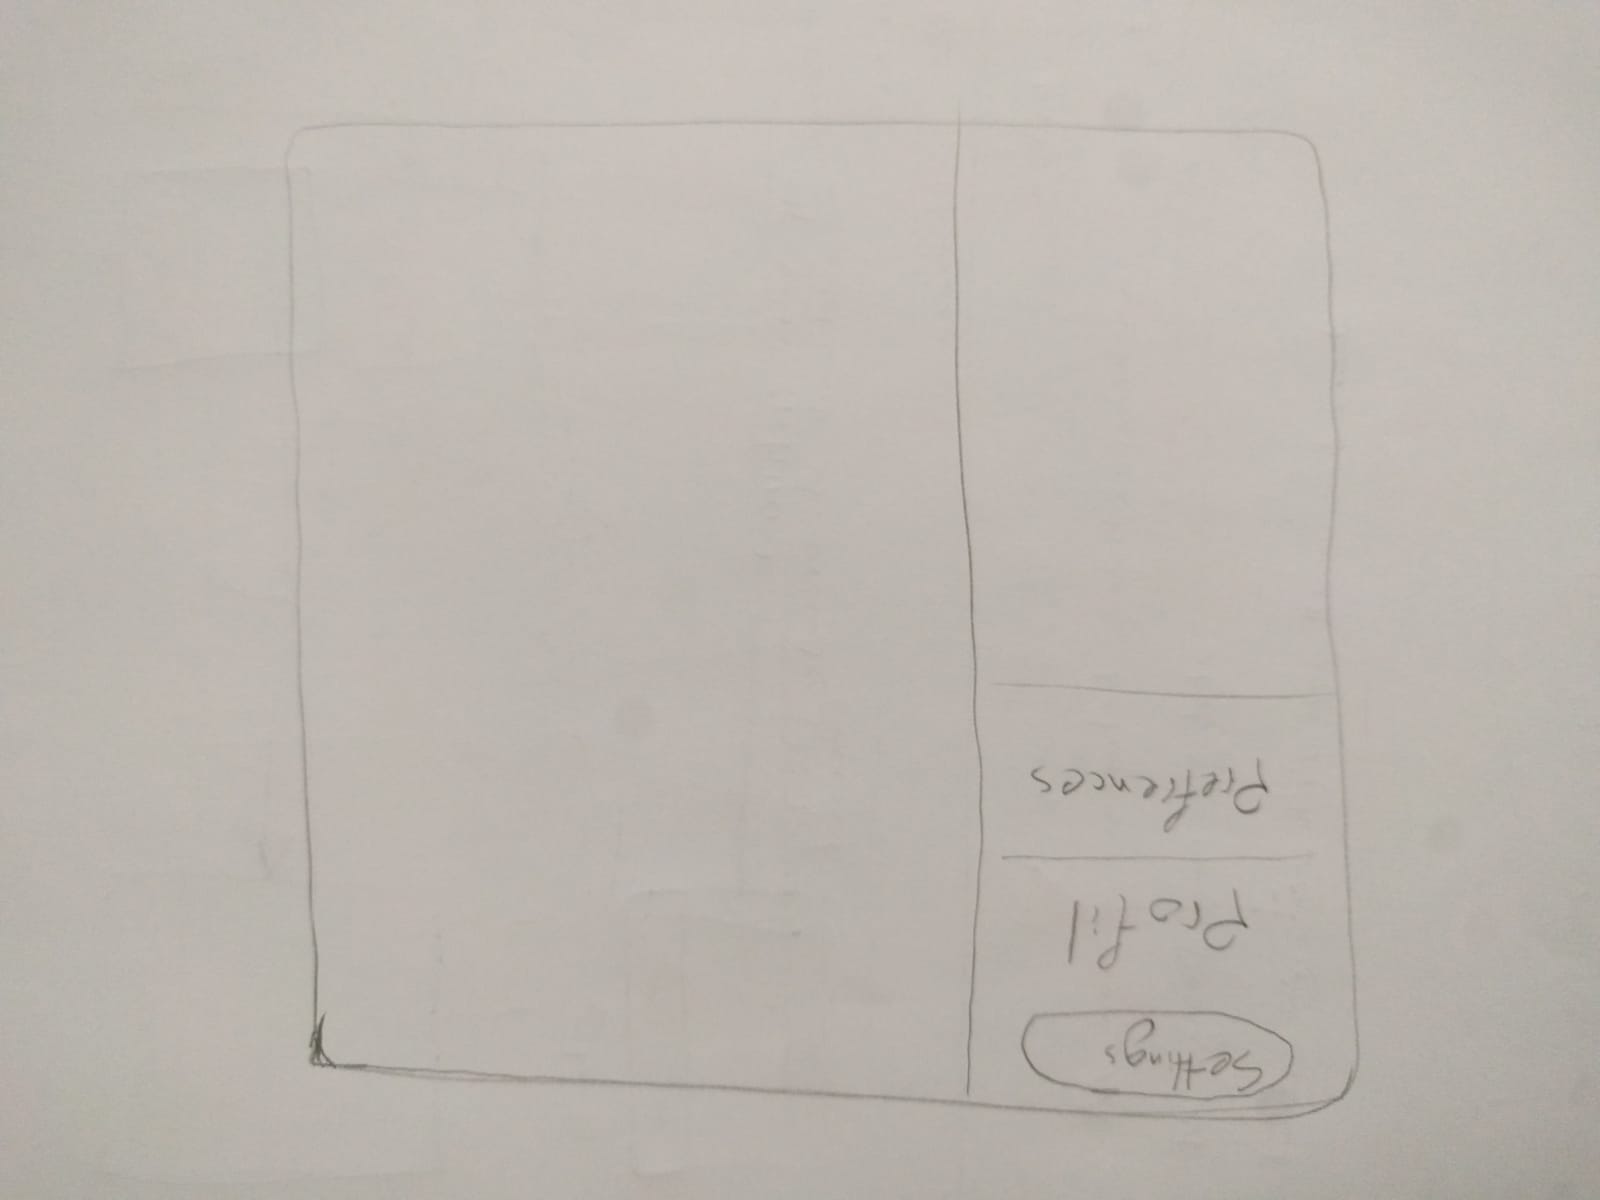 Settings
Profil
Prefrences